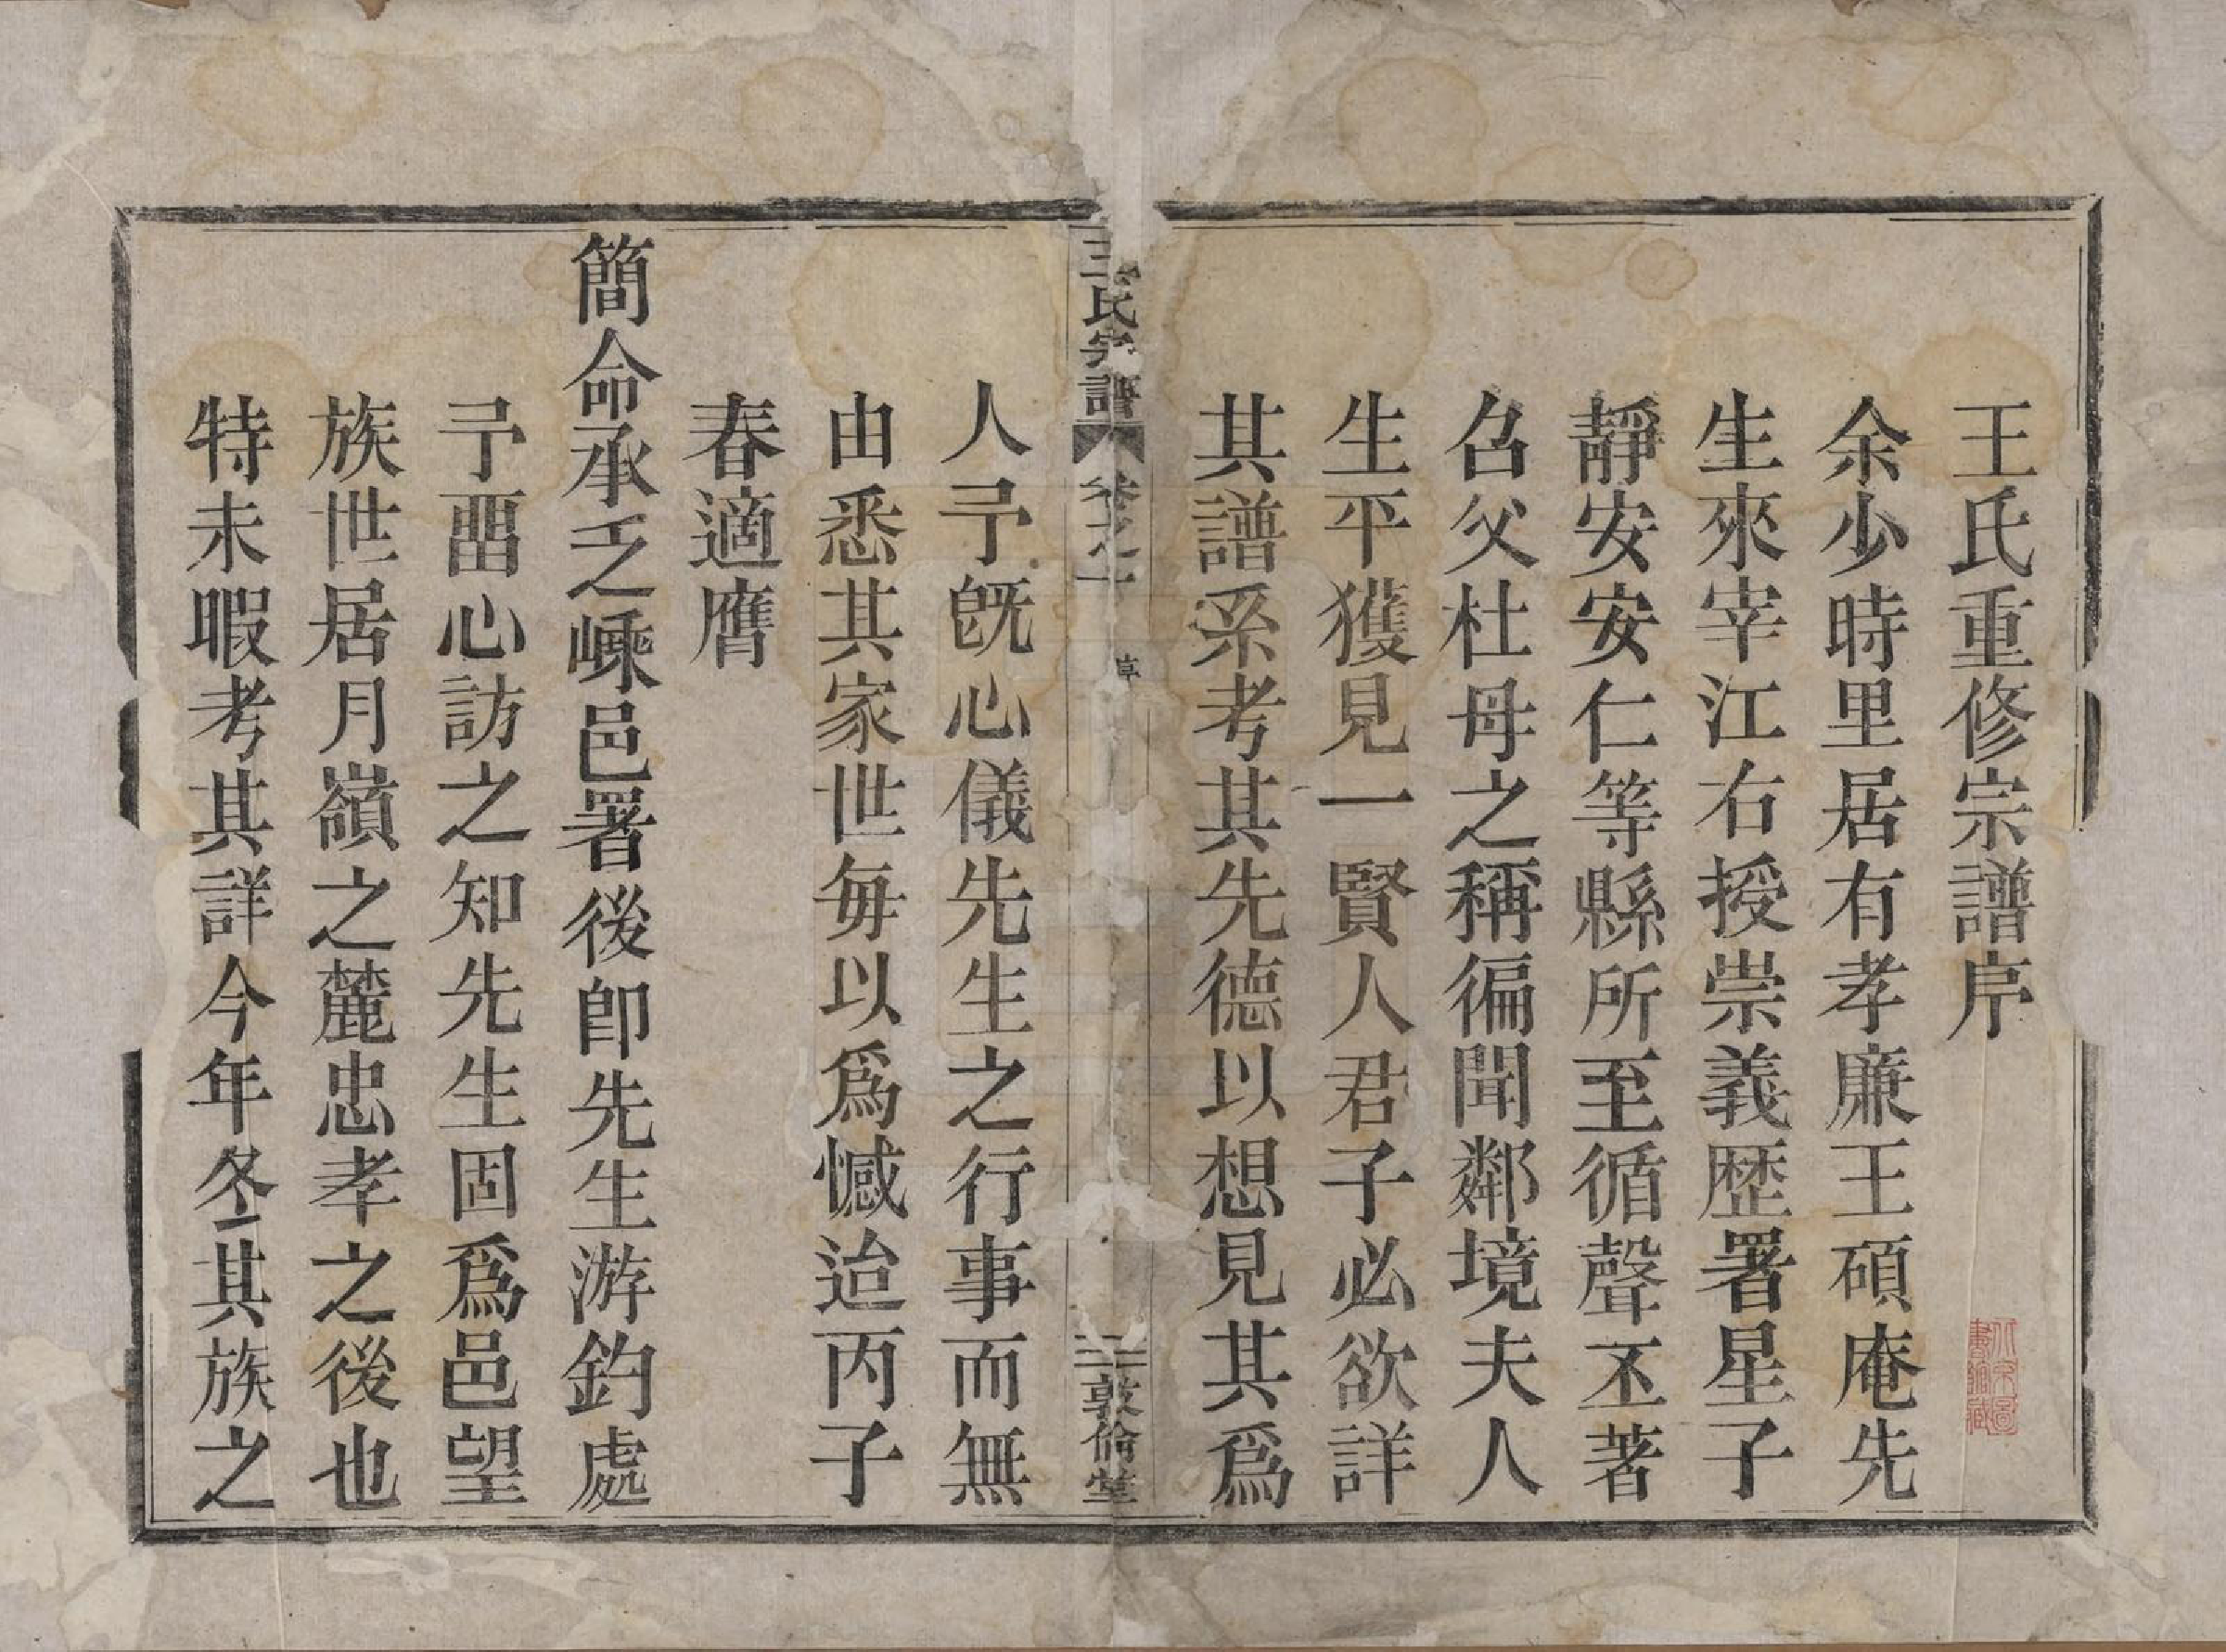 王氏重修宗譜序
余少時里居有孝廉王碩庵先
生來宰江右授崇義歷署星子
靜安安仁等縣所至循聲丕著
召父杜母之稱徧聞鄰境夫人
生平獲見一賢人君子必欲詳
其譜系考其先德以想見其爲
王氏宗譜 卷之一 序 二 敦倫堂
人予旣心儀先生之行事而無
由悉其家世每以爲憾迨丙子
春適膺
簡命承乏嵊邑署後卽先生游釣處
予畱心訪之知先生固爲邑望
族世居月嶺之麓忠孝之後也
特未暇考其詳今年冬其族之